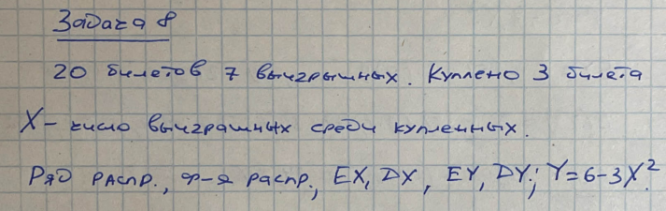 Задача 8
20 билетов 7 выигрышных. Куплено 3 билета
X - число выиграшных среди купленных.
Ряд распр., ф-я распр., EX, DX, EY, DY; Y=6-3X².